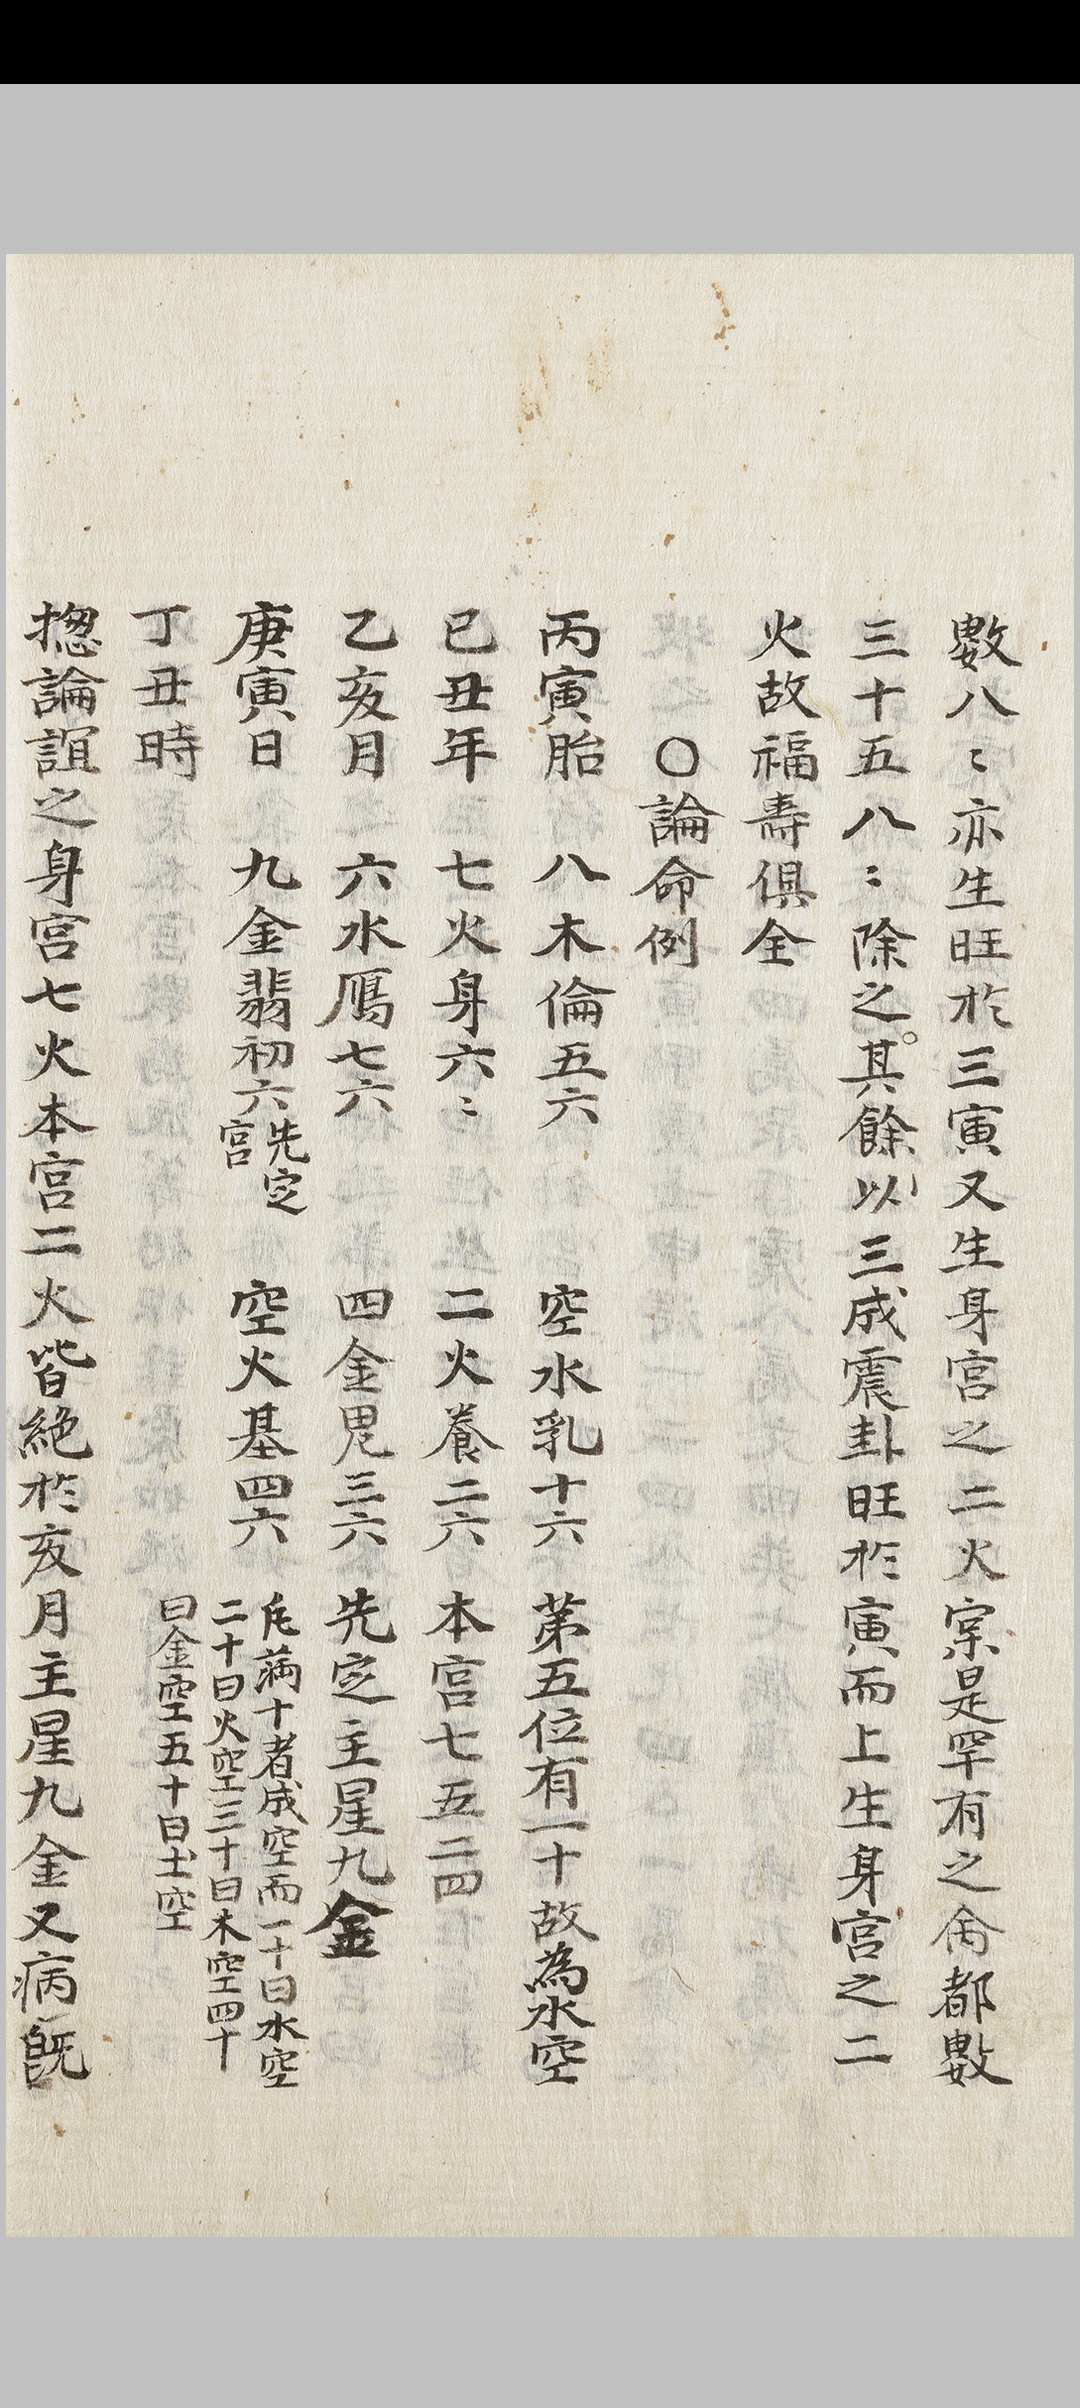 數八〻亦生旺於三寅又生身宮之二火宗是罕有之命都數
三十五八〻除之其餘以三成震卦旺於寅而上生身宮之二
火故福壽俱全
〇論命例
丙寅胎 八木倫五六 空水乳十六 第五位有一十故為水空
己丑年 七火身六〻 二火養二六 本宮七五二四
乙亥月 六水鴈七六 四金鬼三六 先定主星九金
庚寅日 九金翡初六先定宮 空火基四六 凡滿十者成空而一十曰水空二十曰火空三十曰木空四十曰金空五十曰土空
丁丑時
摠論誼之身宮七火本宮二火皆絶於亥月主星九金又病旣